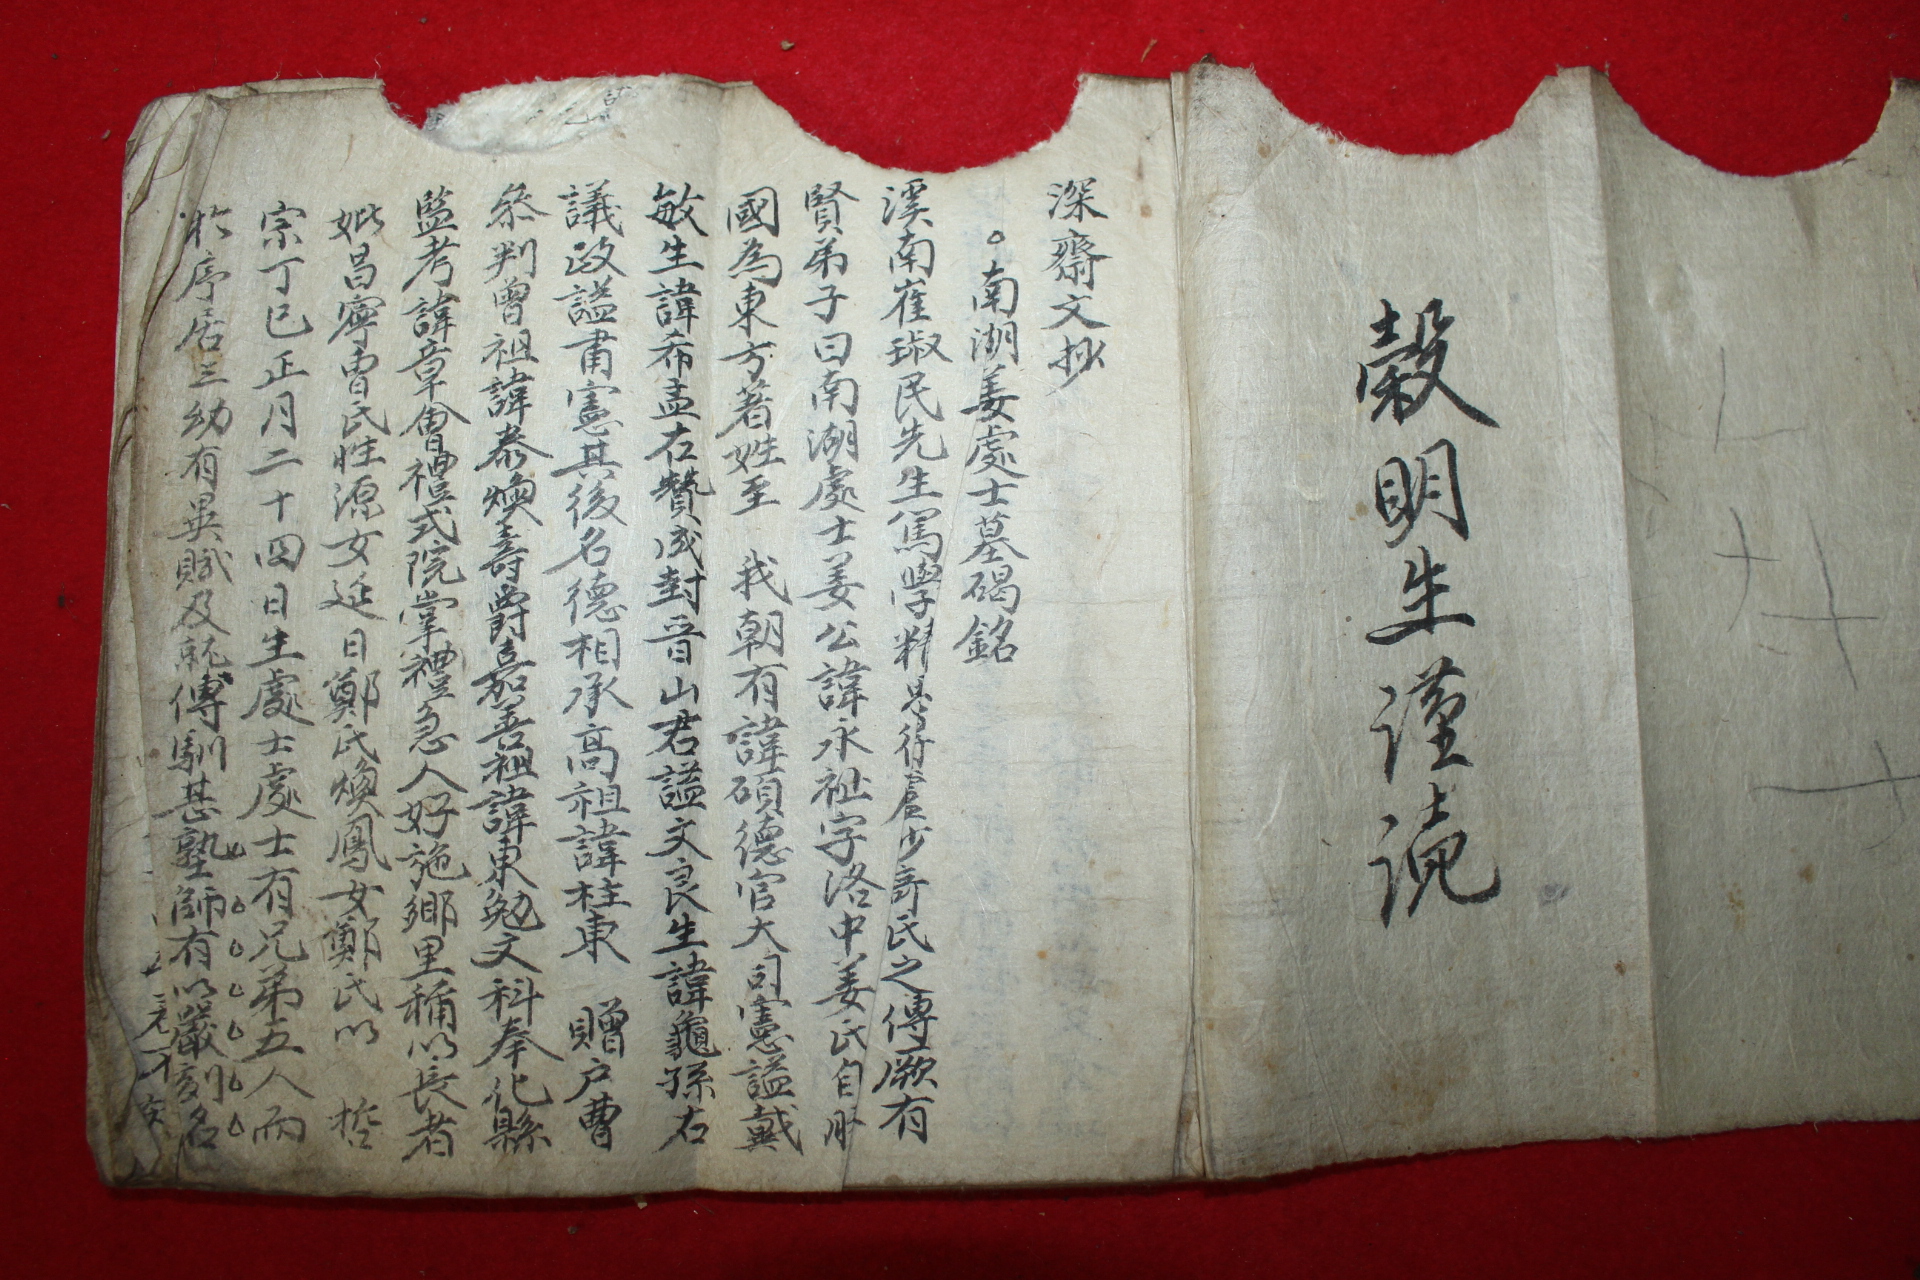 穀明生謹読
深齋文抄
南湖姜處士墓碣銘
溪南崔琡民先生篤學精 得 少 氏之傳厥有
賢弟子曰南湖處士姜公諱永祉字洛中姜氏自肹
國為東方著姓至 我朝有諱碩德官大司憲諡戴
敏生諱希孟右贊成封晋山君諡文良生諱龜孫右
議政諡肅憲其後名德相承高祖諱柱東 贈戶曹
叅判曾祖諱泰煥壽爵嘉善祖諱東勉文科奉化縣
監考諱章會禮式院掌禮急人好施鄉里稱以長者
妣昌寧曺氏性源女延日鄭氏煥鳳女鄭氏以 哲
宗丁巳正月二十四日生處士處士有兄弟五人而
於序居三幼有異賦及就傅馴甚塾師有以嚴刻名